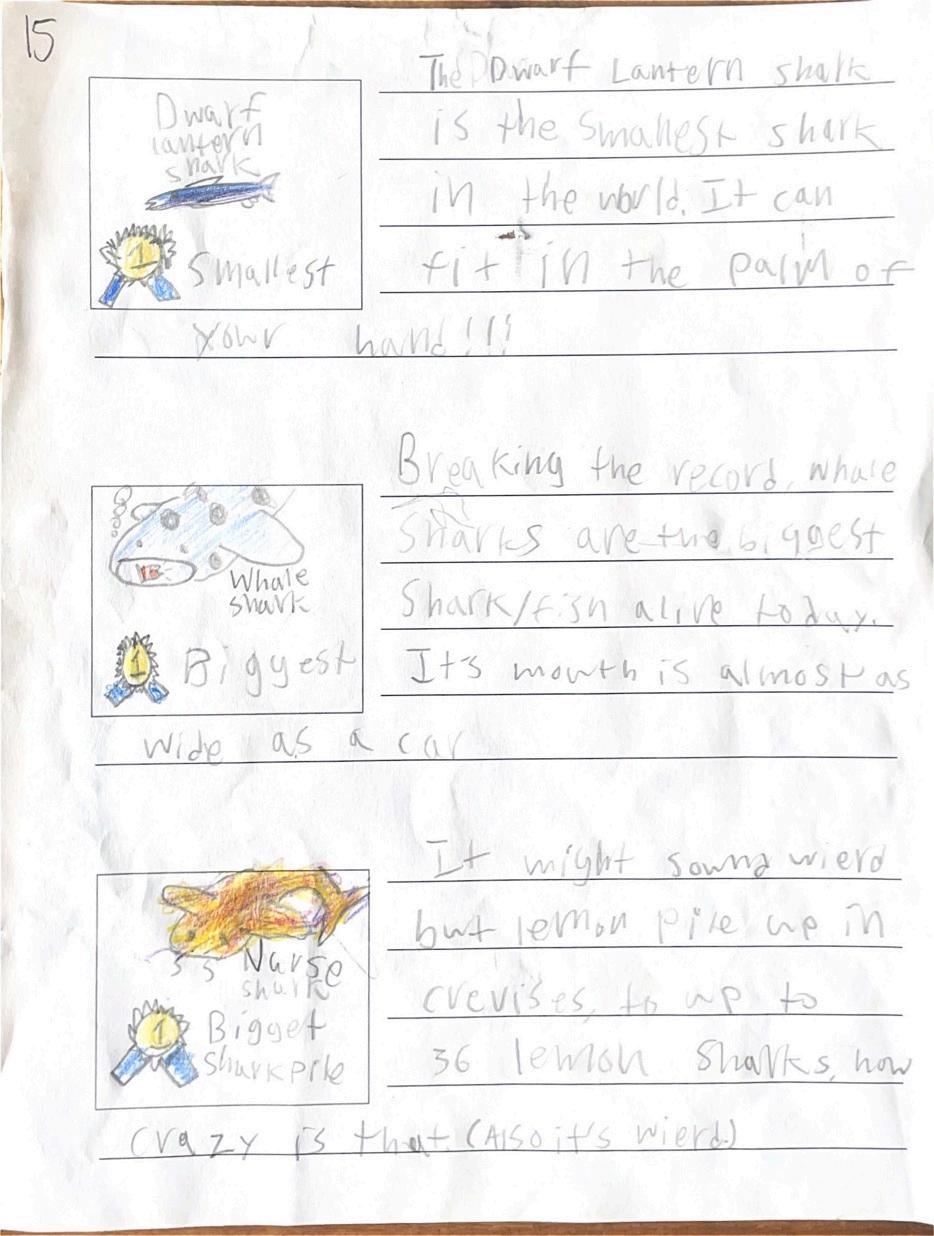 15
Dwarf
lantern
shark
1
Smallest
The Dwarf Lantern shark
is the smallest shark
in the world. It can
fit in the palm of
your hand!!!
Whale
shark
1
Biggest
Breaking the record, whale
Sharks are the biggest
Shark/fish alive today.
It's mouth is almost as
wide as a car
Nurse
shark
1
Bigget
Shark pile
It might sound wierd
but lemon pile up in
crevises, to up to
36 lemon Sharks, how
crazy is that. (Also it's wierd.)